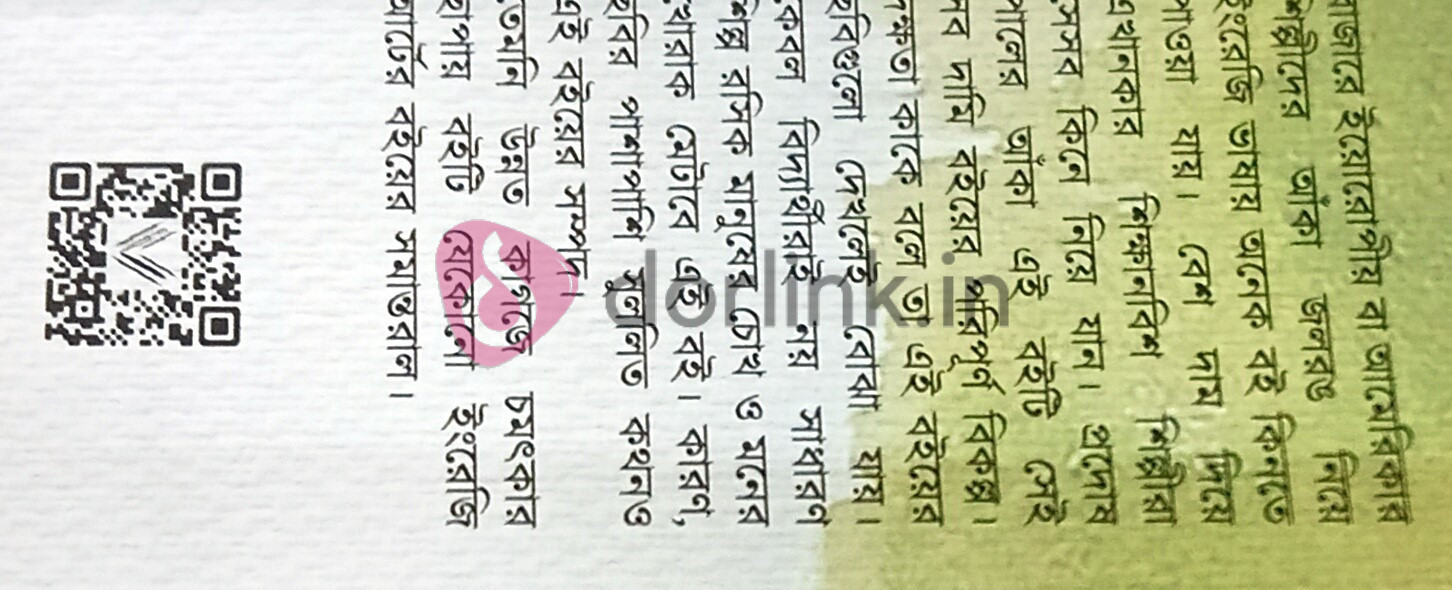 বাজারে ইয়োরোপীয় বা আমেরিকার
শিল্পীদের আঁকা জলরঙ নিয়ে
ইংরেজি ভাষায় অনেক বই কিনতে
পাওয়া যায়। বেশ দাম দিয়ে
এখানকার শিক্ষানবিশ শিল্পীরা
সেসব কিনে নিয়ে যান। প্রদোষ
পালের আঁকা এই বইটি সেই
সব দামি বইয়ের পরিপূর্ণ বিকল্প।
দক্ষতা কাকে বলে তা এই বইয়ের
ছবিগুলো দেখলেই বোঝা যায়।
কেবল বিদ্যার্থীরাই নয় সাধারণ
শিল্প রসিক মানুষের চোখ ও মনের
খোরাক মেটাবে এই বই। কারণ,
ছবির পাশাপাশি সুললিত কথনও
এই বইয়ের সম্পদ।
তেমনি উন্নত কাগজে চমৎকার
ছাপায় বইটি যেকোনো ইংরেজি
আর্টের বইয়ের সমান্তরাল।
dorlink.in